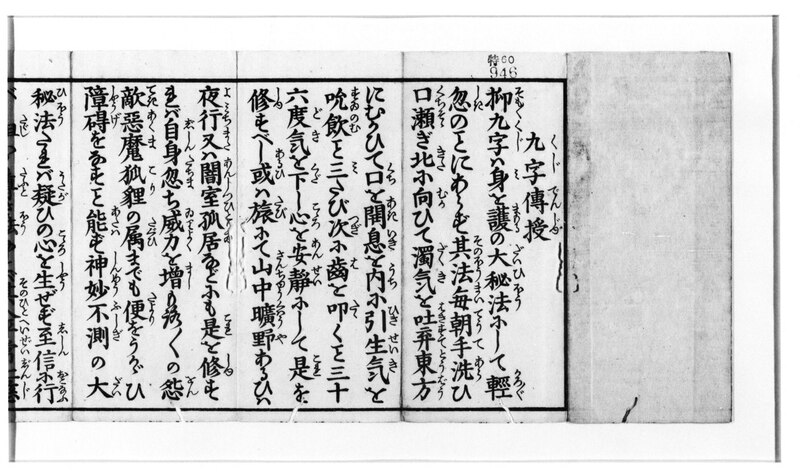 特60
946
九字傳授
抑九字ハ身を護の大秘法にして輕
忽のことにあらず其法毎朝手洗ひ
口瀬ぎ北に向ひて濁気を吐弃東方
にむかひて口を開息を内に引生気を
吮飲こと三たび次に齒を叩くこと三十
六度気を下し心を安静にして是を
修すべし或ハ旅にて山中曠野あるひハ
夜行又ハ闇室孤居などにも是を修す
れバ自身忽ち威力を増もろ〳〵の怨
敵惡魔狐貍の属までも便をうかゞひ
障碍をなすこと能ず神妙不測の大
秘法なれバ疑ひの心を生ぜず至信に行